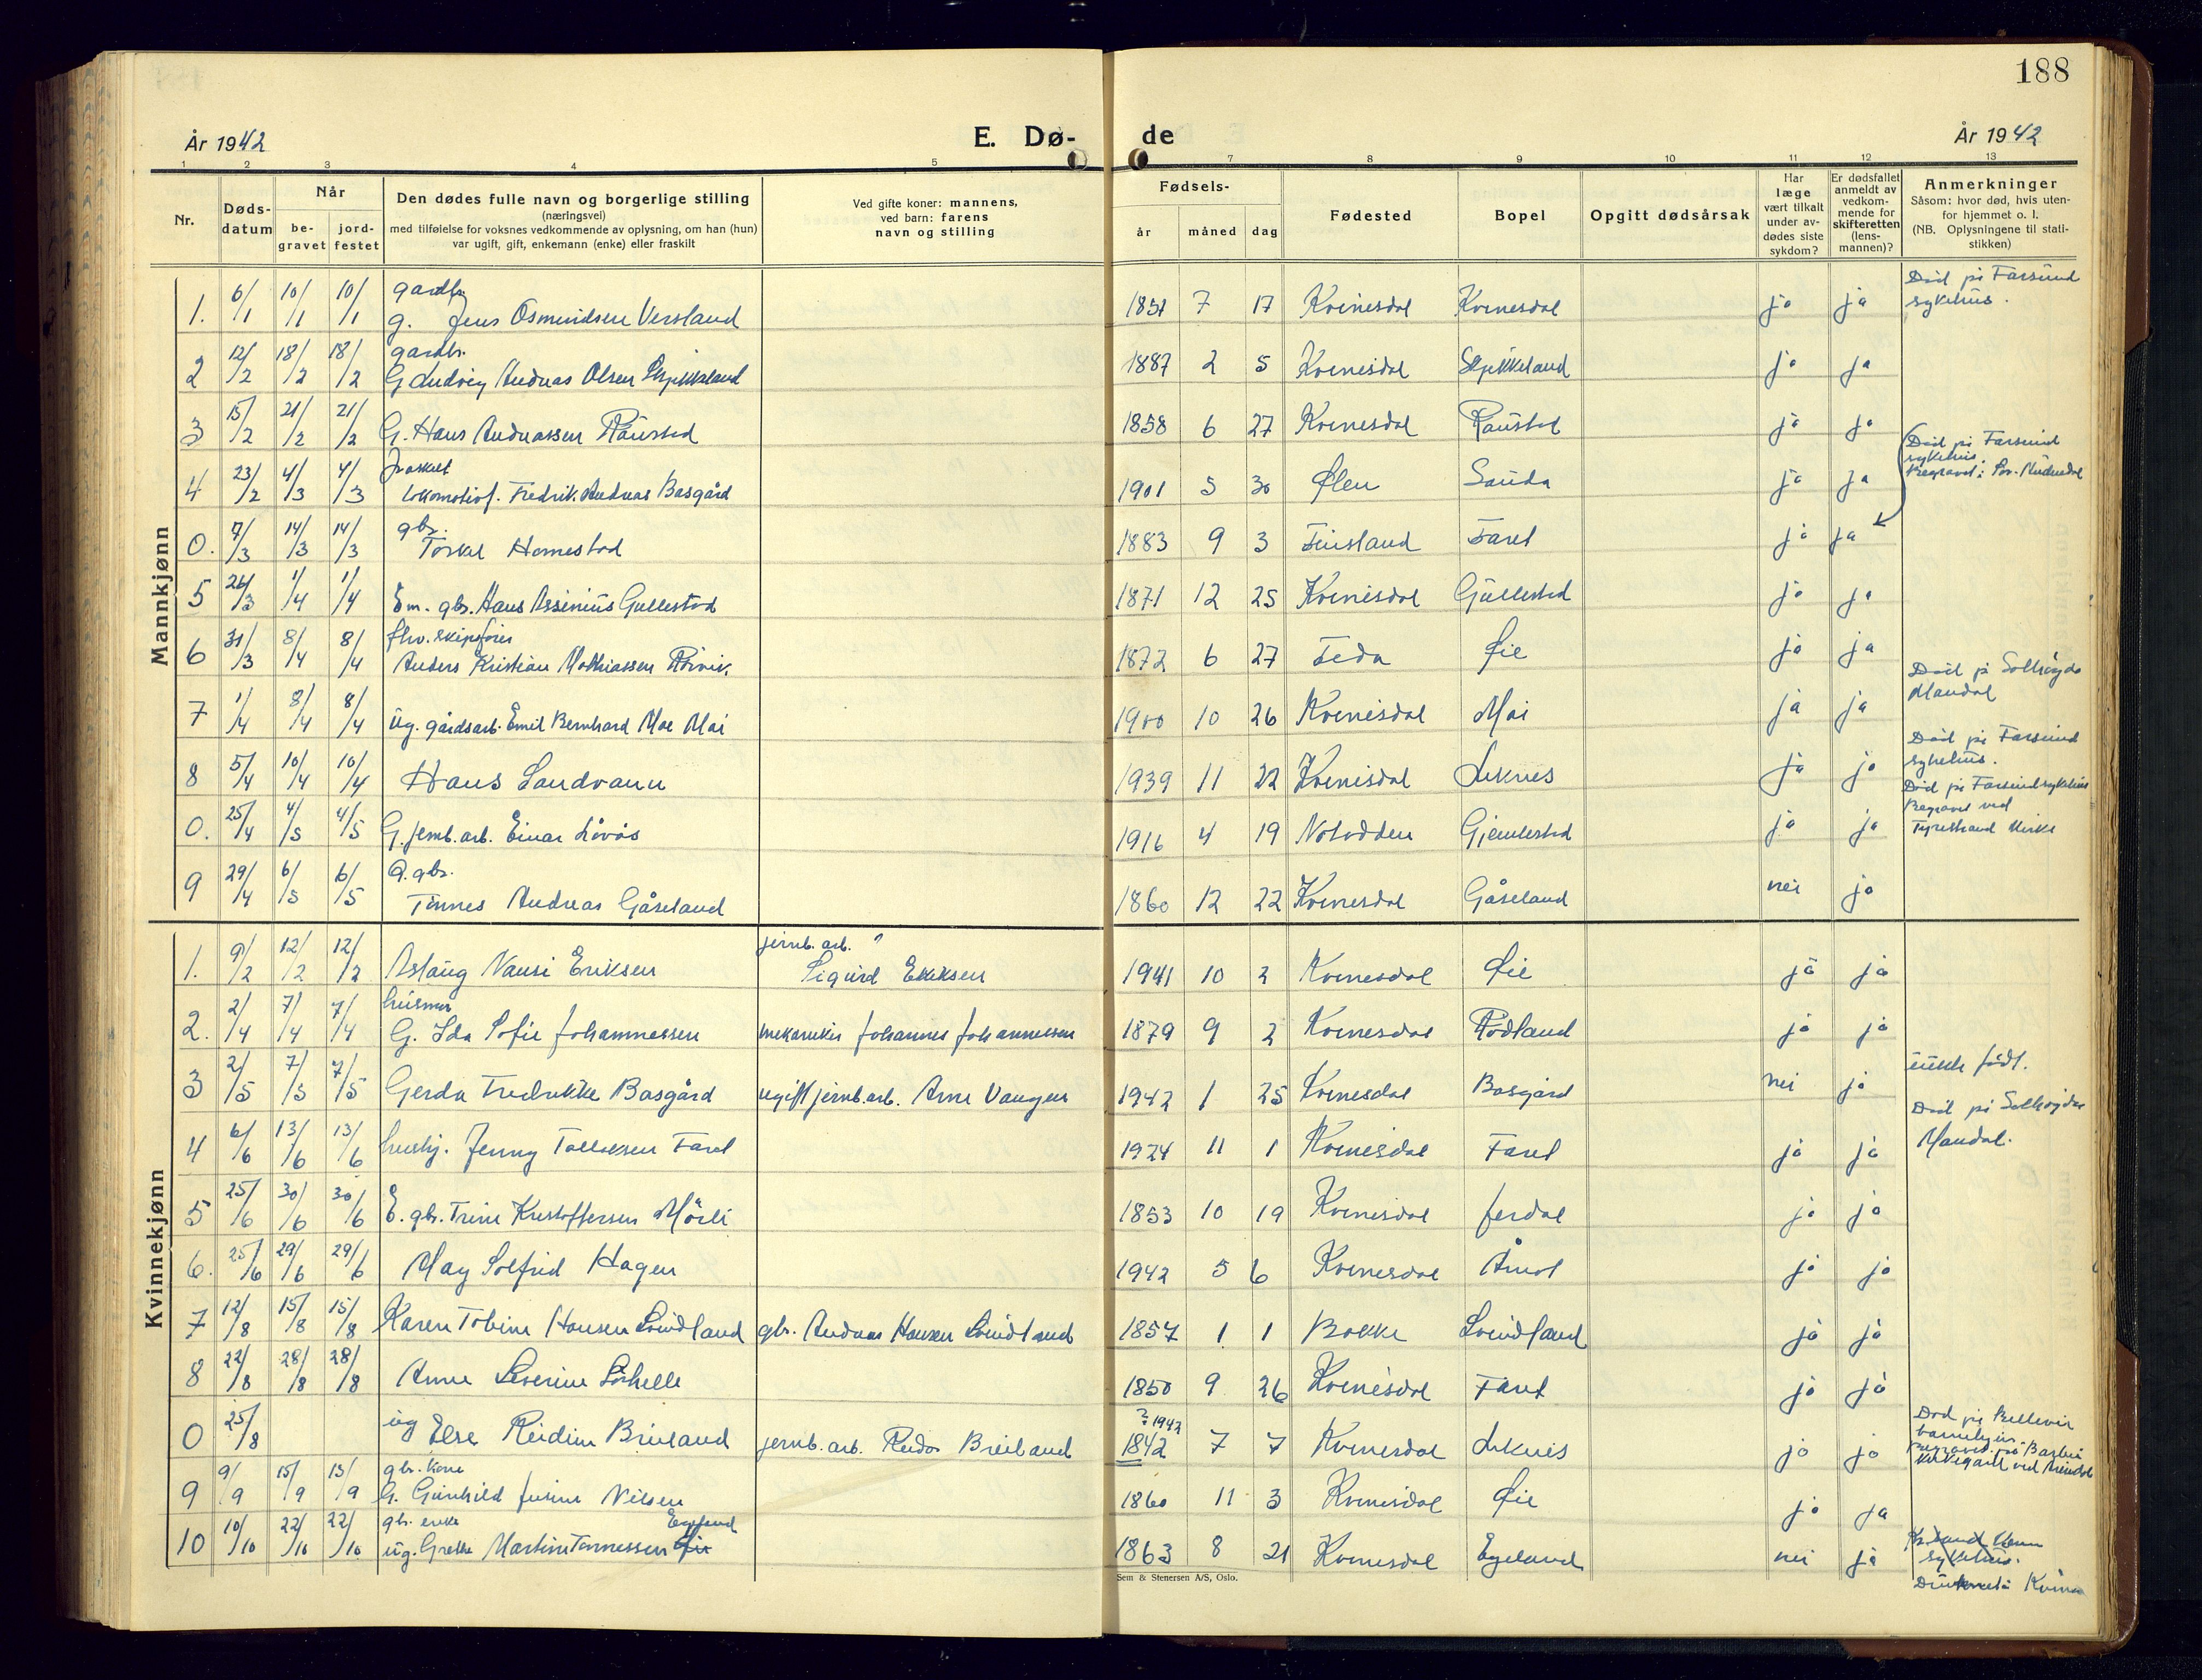 188
År 1942
E. Dø-
de
År 1942
1 2 3 4 5 7 8 9 10 11 12 13
Nr.
Døds-
datum
Når
be-
gravet
jord-
festet
Den dødes fulle navn og borgerlige stilling
(næringsvei)
med tilføielse for voksnes vedkommende av oplysning, om han (hun)
var ugift, gift, enkemann (enke) eller fraskilt
Ved gifte koner: mannens,
ved barn: farens
navn og stilling
Fødsels-
år måned dag
Fødested
Bopel
Opgitt dødsårsak
Har
læge
vært tilkalt
under av-
dødes siste
sykdom?
Er dødsfallet
anmeldt av
vedkom-
mende for
skifteretten
(lens-
mannen)?
Anmerkninger
Såsom: hvor død, hvis uten-
for hjemmet o. l.
(NB. Oplysningene til stati-
stikken)
Mannkjønn
gardbr.
1. 6/1 10/1 10/1 g. Jens Osmundsen Versland 1851 7 17 Kvinesdal Kvinesdal ja ja
Død på Farsund
sykehus.
gardbr.
2 12/2 18/2 18/2 G Ludvig Andreas Olsen 1887 2 5 Kvinesdal ja ja
3 15/2 21/2 21/2 G. Hans Andreassen Raustad 1858 6 27 Kvinesdal Raustad ja ja
fraskilt
4 23/2 4/3 4/3 Lokomotivf. Fredrik Andreas Basgård 1901 5 30 Ølen Sauda ja ja
Død på Farsund
sykehus.
Begravet i Sør-Audnedal
gbr.
0. 7/3 14/3 14/3 Torkel Homestad 1883 9 3 Finsland Faret ja ja
5 26/3 1/4 1/4 Em. gbr. Hans Assinius Gullestad 1871 12 25 Kvinesdal Gullestad ja ja
fhv. skipsfører
6 31/3 8/4 8/4 Anders Kristian Mathiassen Rørvik. 1872 6 27 Feda Øie ja ja
7 1/4 8/4 8/4 ug. gårdsarb. Emil Bernhard Moe Moi 1900 10 26 Kvinesdal Moi ja ja
Død på Solhøgda
Mandal
8 5/4 10/4 10/4 Hans Sandvann 1939 11 22 Kvinesdal Liknes ja ja
Død på Farsund
sykehus.
0. 25/4 4/5 4/5 G. jernb. arb. Einar Løvås 1916 4 19 Notodden Gjemlestad ja ja
Død på Farsund sykehus
Begravet ved
Tyristrand kirke
gbr.
9 29/4 6/5 6/5 Tønnes Andreas Gåseland 1860 12 22 Kvinesdal Gåseland nei ja
Kvinnekjønn
jernb. arb.
1. 9/2 12/2 12/2 Aslaug Nansi Eriksen Sigurd Eriksen 1941 10 2 Kvinesdal Øie ja ja
husmor
2. 2/4 7/4 7/4 G. Ida Sofie Johannessen mekaniker Johannes Johannessen 1879 9 2 Kvinesdal Rødland ja ja
3 2/5 7/5 7/5 Gerda Fredrikke Basgård ugift jernb. arb. Arne Vangen 1942 1 25 Kvinesdal Basgård nei ja
uekte født.
4 6/6 13/6 13/6 hushj. Jenny Tallaksen Faret 1924 11 1 Kvinesdal Faret ja ja
Død på Solhøgda
Mandal.
5 25/6 30/6 30/6 E. gbr. Trine Kristoffersen Mårli 1853 10 19 Kvinesdal Jerdal ja ja
6. 25/6 29/6 29/6 May Solfrid Hagen 1942 5 6 Kvinesdal Åmot ja ja
7 12/8 15/8 15/8 Karen Tobine Hansen Svindland gbr. Andreas Hansen Svindland 1857 1 1 Bakke Svindland ja ja
8 22/8 28/8 28/8 Anne Severine Sørhelle 1850 9 26 Kvinesdal Faret ja ja
? 1942
0 25/8 ug Else Reidun Breiland jernb. arb. Reidar Breiland 1842 7 7 Kvinesdal Liknes ja ja
Død på Bellevue
begravet på Barbu
kirkegård ved Arendal
gbr. kone
9 9/9 15/9 15/9 G. Gunhild Jusine Nilsen 1860 11 3 Kvinesdal Øie ja ja
gbr. enke Egeland
10 10/10 22/10 22/10 ug. Grethe Martine Tønnessen Øie 1863 8 21 Kvinesdal Egeland nei ja
sykehus.
Kvina
Sem & Stenersen A/S, Oslo.